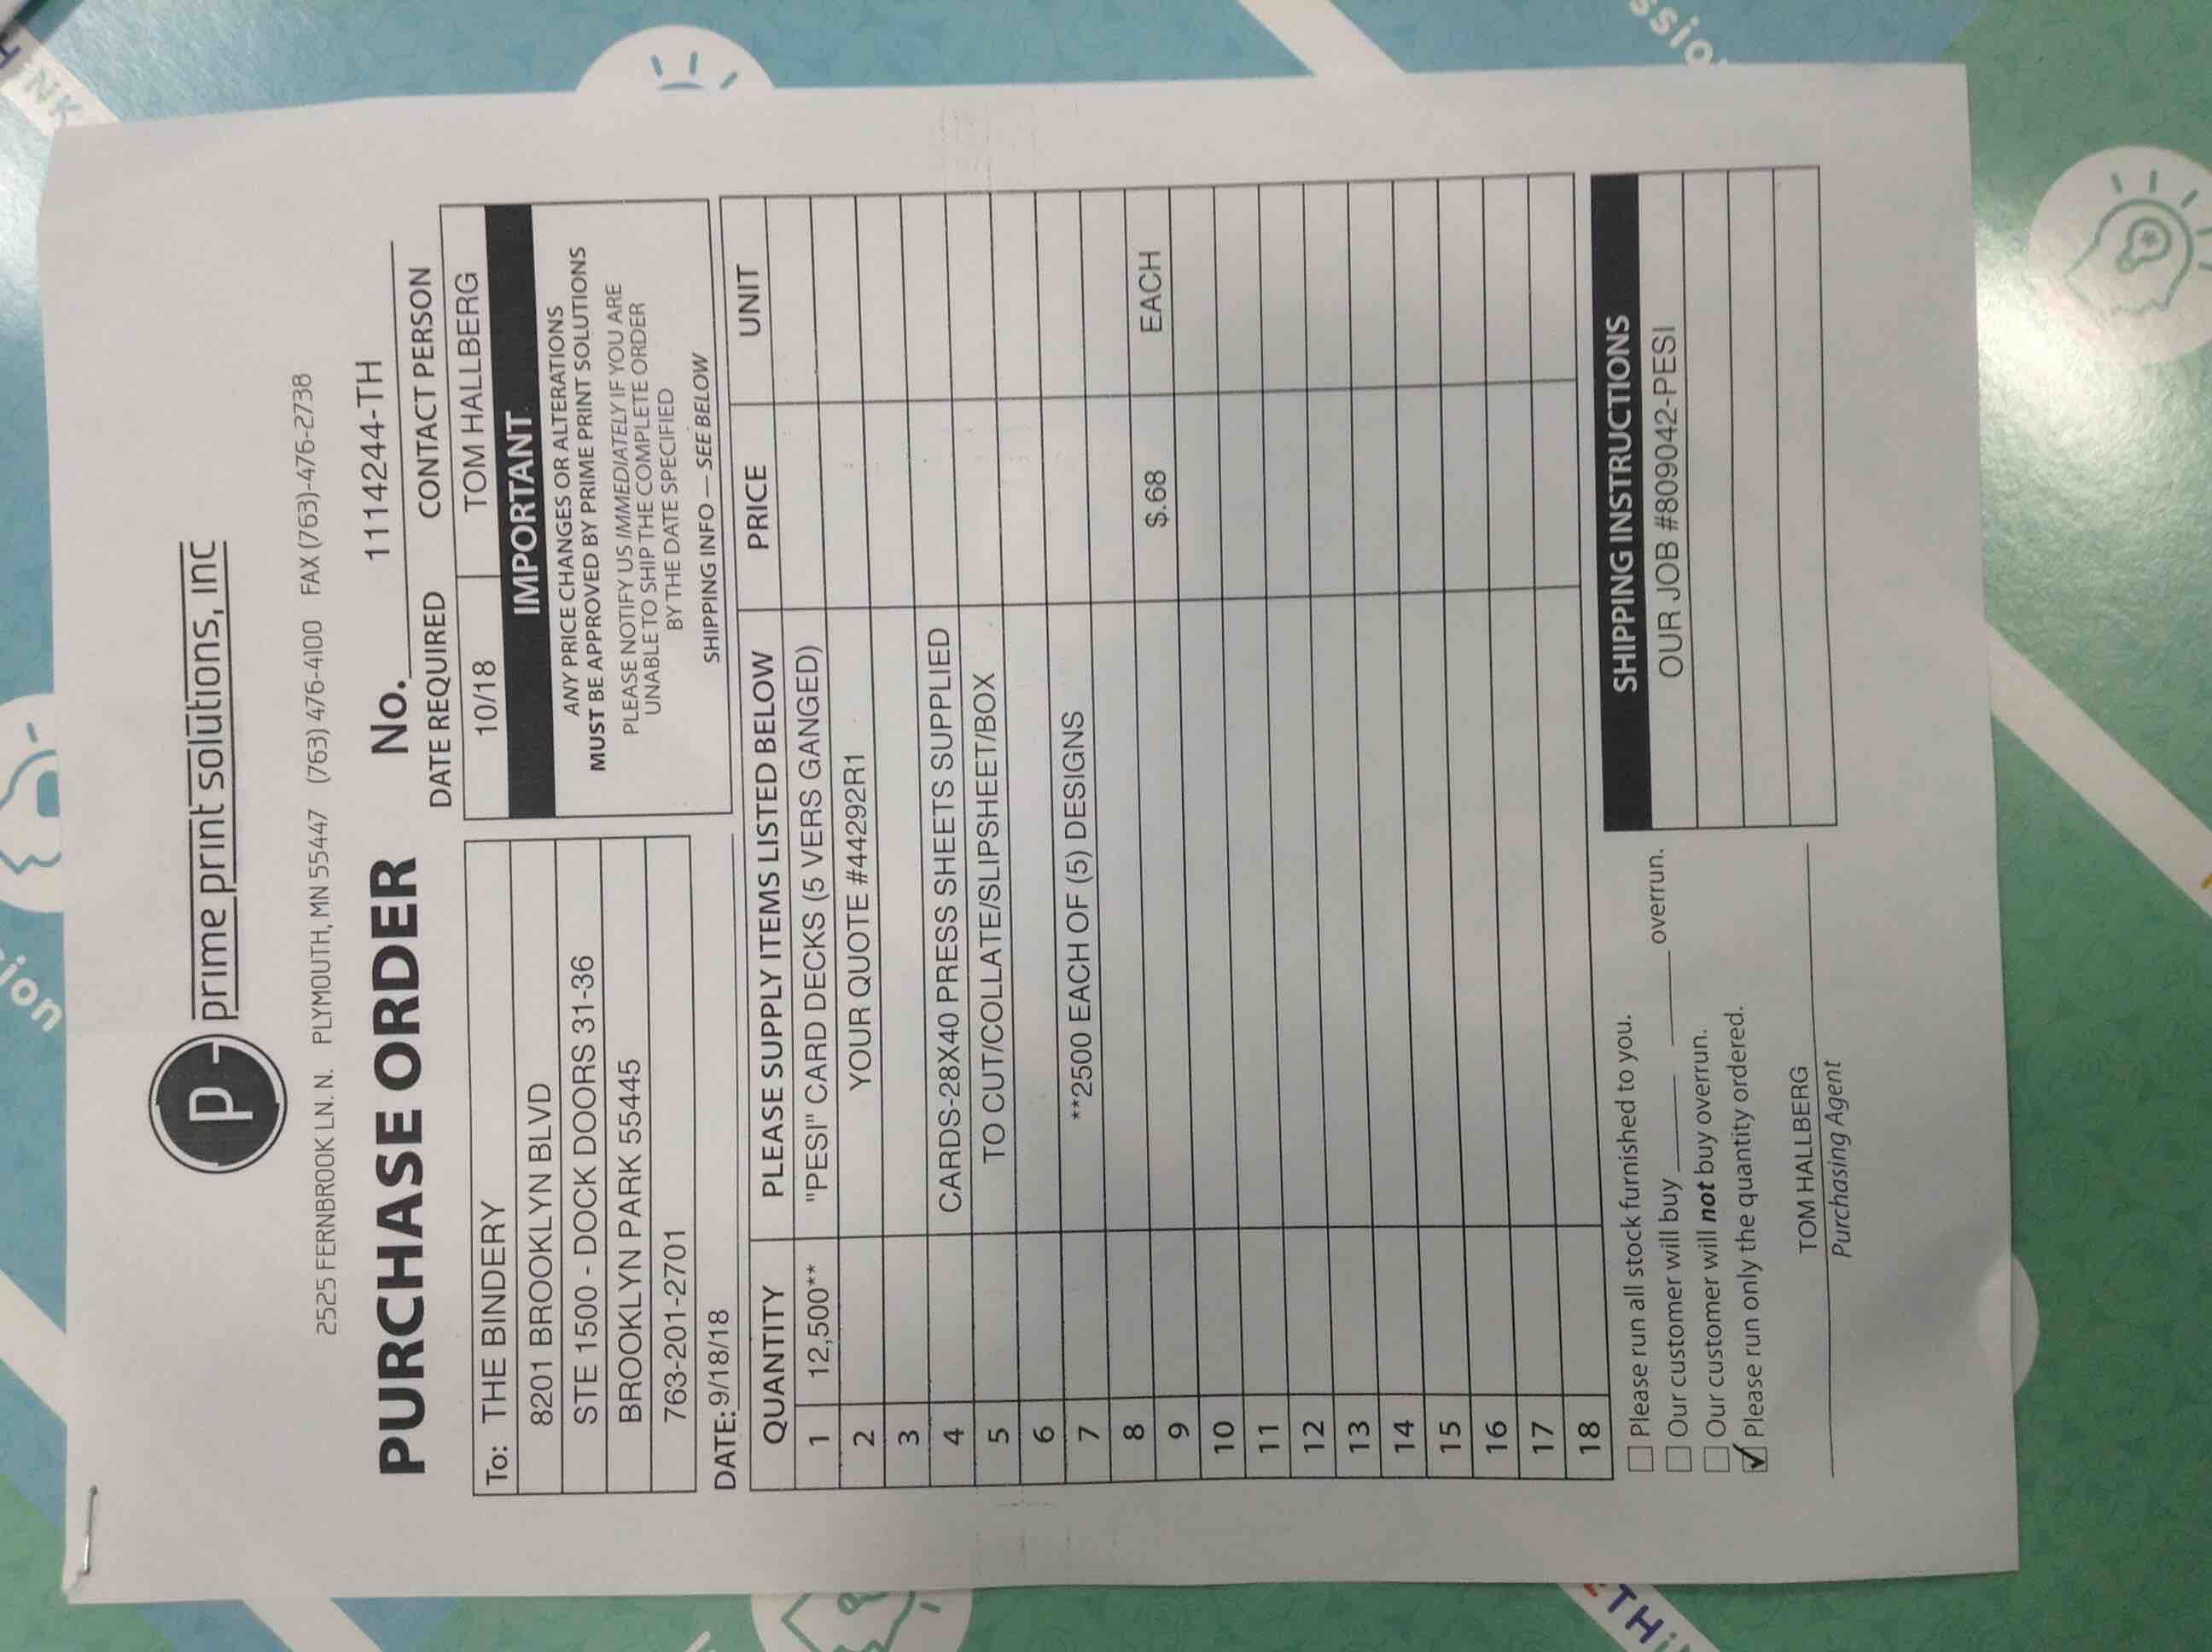 P prime print solutions, inc
2525 FERNBROOK LN. N. PLYMOUTH, MN 55447 (763) 476-4100 FAX (763)-476-2738
PURCHASE ORDER No. 1114244-TH
DATE REQUIRED CONTACT PERSON
10/18 TOM HALLBERG
To: THE BINDERY
8201 BROOKLYN BLVD
STE 1500 - DOCK DOORS 31-36
BROOKLYN PARK 55445
763-201-2701
IMPORTANT
ANY PRICE CHANGES OR ALTERATIONS
MUST BE APPROVED BY PRIME PRINT SOLUTIONS
PLEASE NOTIFY US IMMEDIATELY IF YOU ARE
UNABLE TO SHIP THE COMPLETE ORDER
BY THE DATE SPECIFIED
SHIPPING INFO — SEE BELOW
DATE: 9/18/18
QUANTITY PLEASE SUPPLY ITEMS LISTED BELOW PRICE UNIT
1 12,500** "PESI" CARD DECKS (5 VERS GANGED)
2 YOUR QUOTE #44292R1
3
4 CARDS-28X40 PRESS SHEETS SUPPLIED
5 TO CUT/COLLATE/SLIPSHEET/BOX
6
7 **2500 EACH OF (5) DESIGNS
8
9 $.68 EACH
10
11
12
13
14
15
16
17
18
Please run all stock furnished to you.
Our customer will buy overrun.
Our customer will not buy overrun.
Please run only the quantity ordered.
TOM HALLBERG
Purchasing Agent
SHIPPING INSTRUCTIONS
OUR JOB #809042-PESI